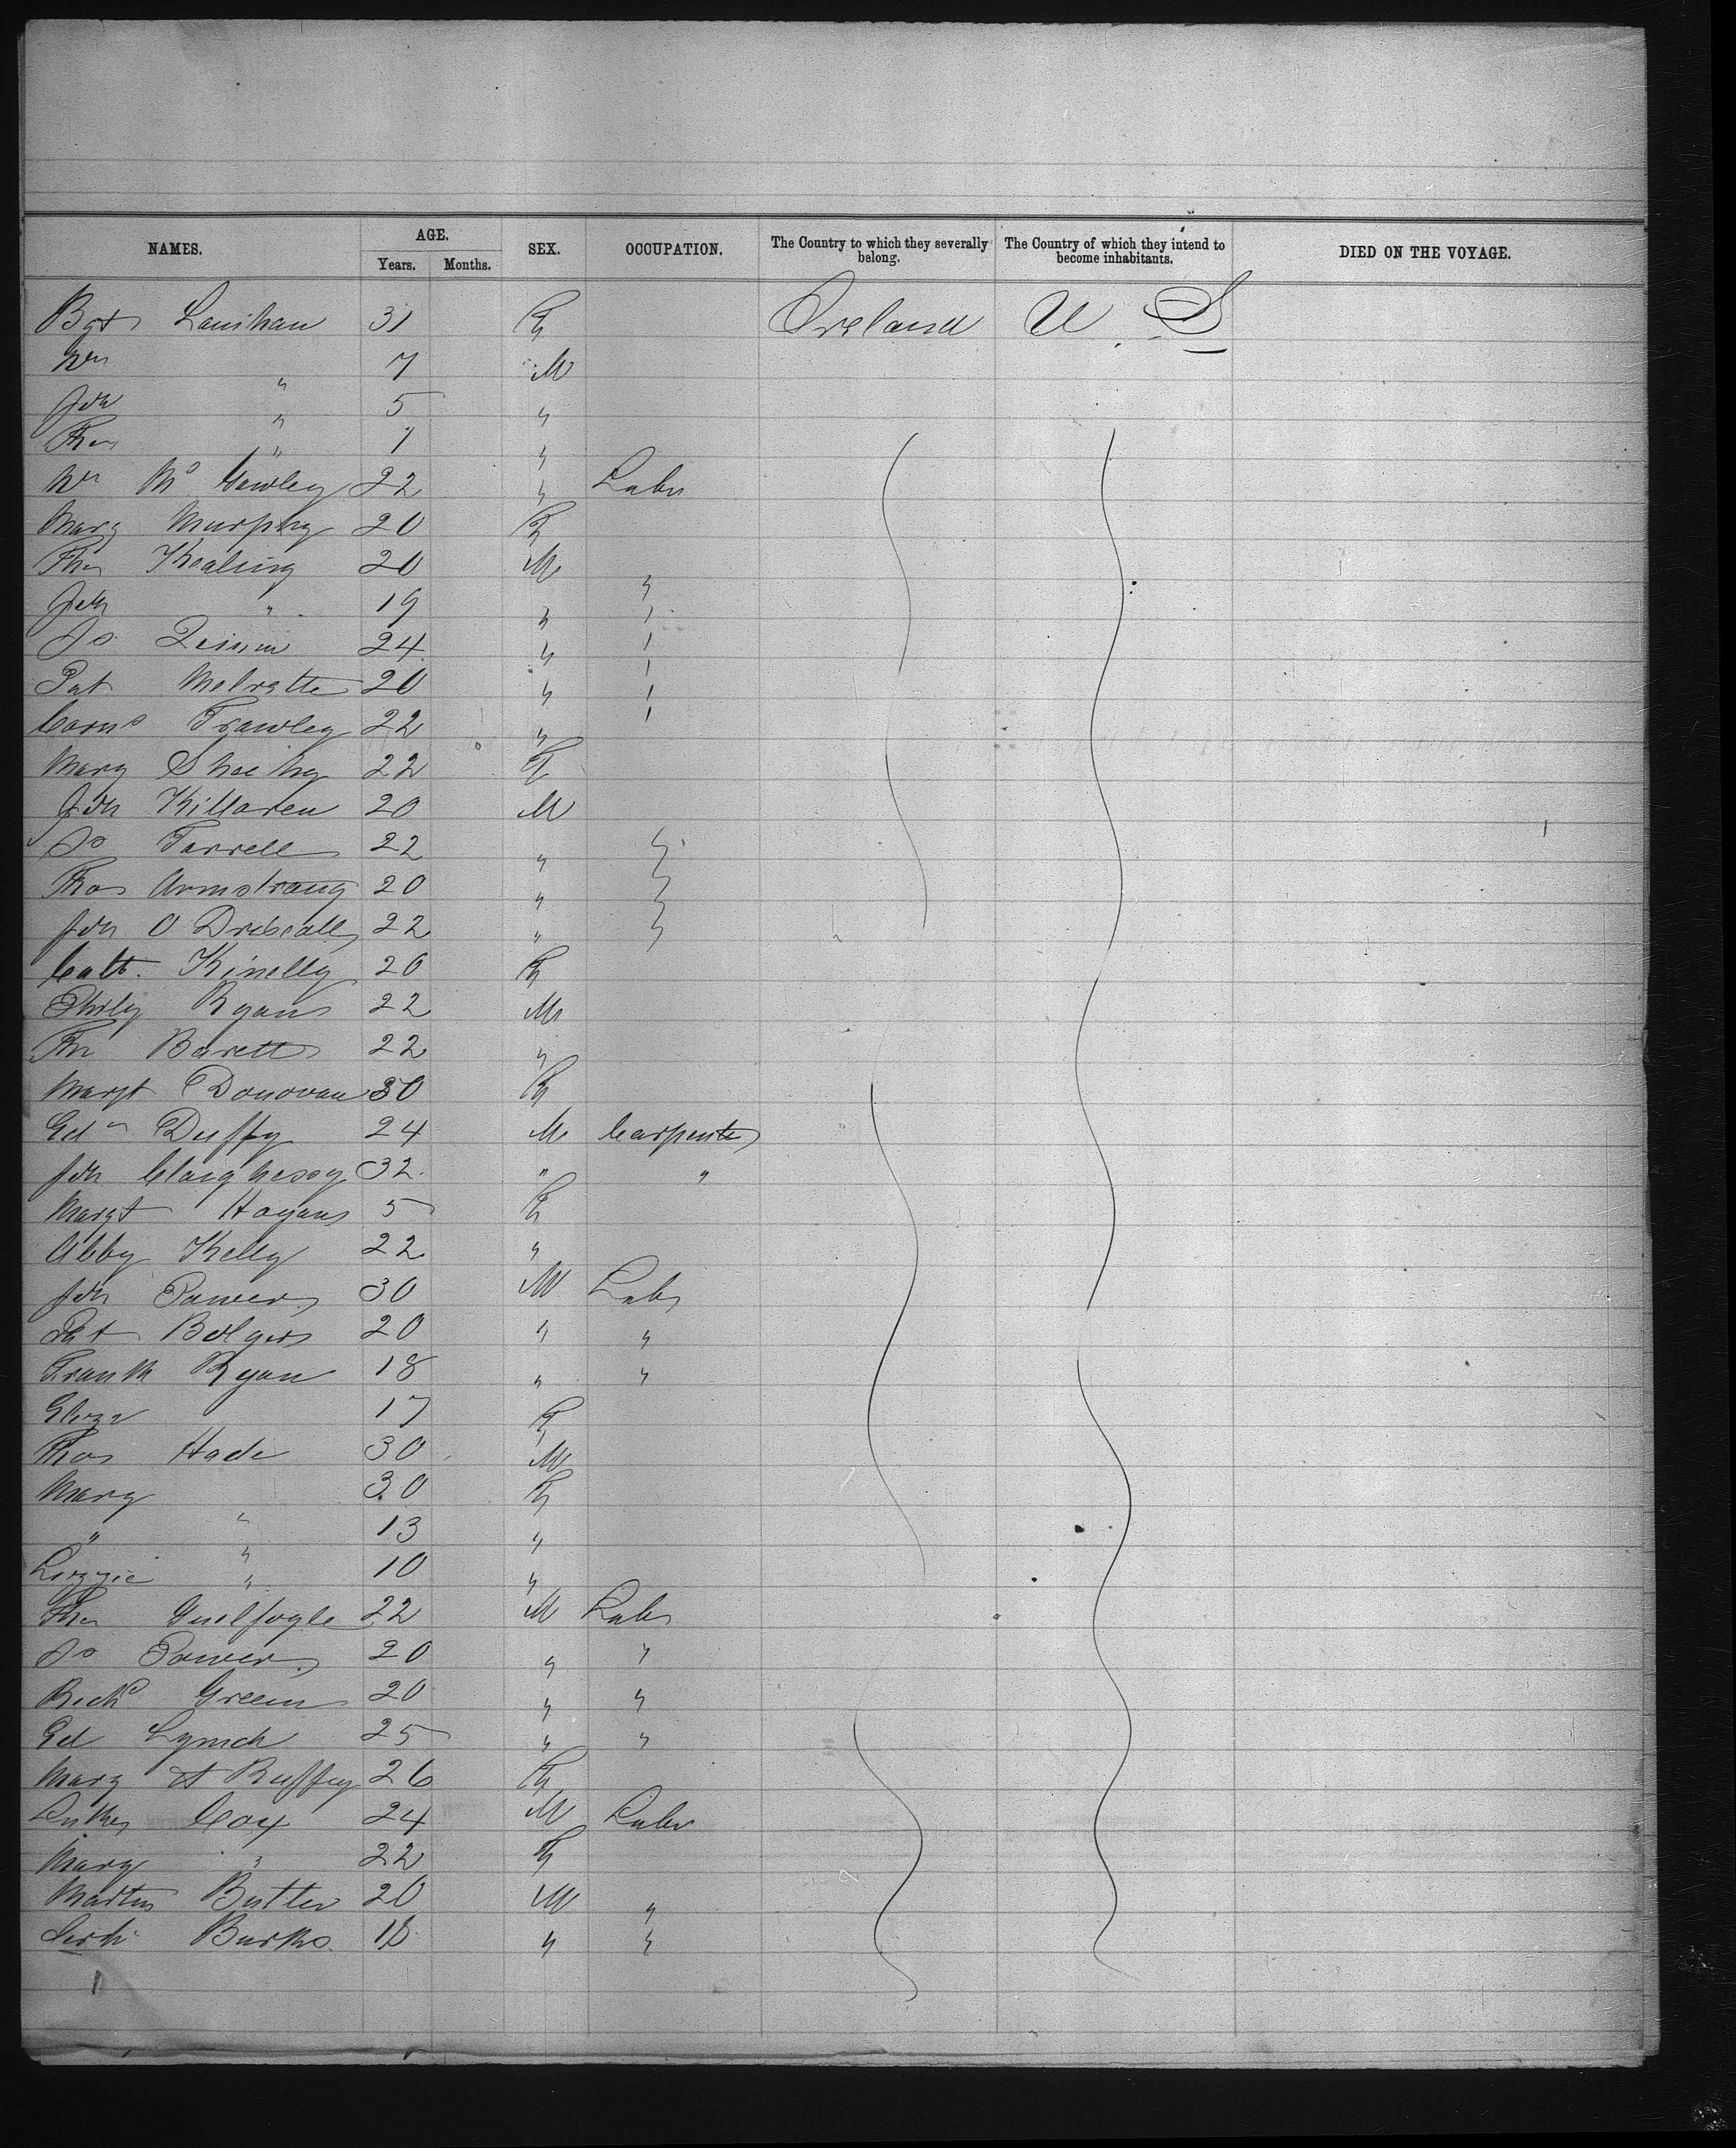 NAMES. AGE. Years. Months. SEX. OCCUPATION. The Country to which they severally belong. The Country of which they intend to become inhabitants. DIED ON THE VOYAGE.
Bgt Lanihan 31 F Ireland U. S
Wm " 7 M
Jon " 5 "
Thos " 1 "
Wm Mc Gawley 22 " Labr
Mary Murphy 20 F
Thos Kealing 20 M "
Jon " 19 " "
Do Quinn 24 " "
Pat 20 " "
Corns Frawley 22 " "
Mary Sheehy 22 F
Jon Killoren 20 M
Do Farrell 22 " "
Thos Armstrong 20 " "
Jon O Driscoll 22 " "
Cath. Kinelly 20 F
Philip Ryan 22 M
Thos Barett 22 "
Margt Donovan 30 F
Edw Duffy 24 M Carpenter
Jon 32 " "
Margt Hogans 5 F
Abby Kelly 22 "
Jon Power 30 M Labr
Pat Bolgers 20 " "
Frank Ryan 18 " "
Eliza 17 F
Thos Hade 30 M
Mary " 30 F
" " 13 "
Lizzie " 10 "
Thos Guilfoyle 22 M Labr
Do Power 20 " "
Richd Green 20 " "
Ed Lynch 25 " "
Mary A Ruffey 26 F
Luke Cox 24 M Labr
Mary " 22 F
Martin Butler 20 M "
Burke 18 " "